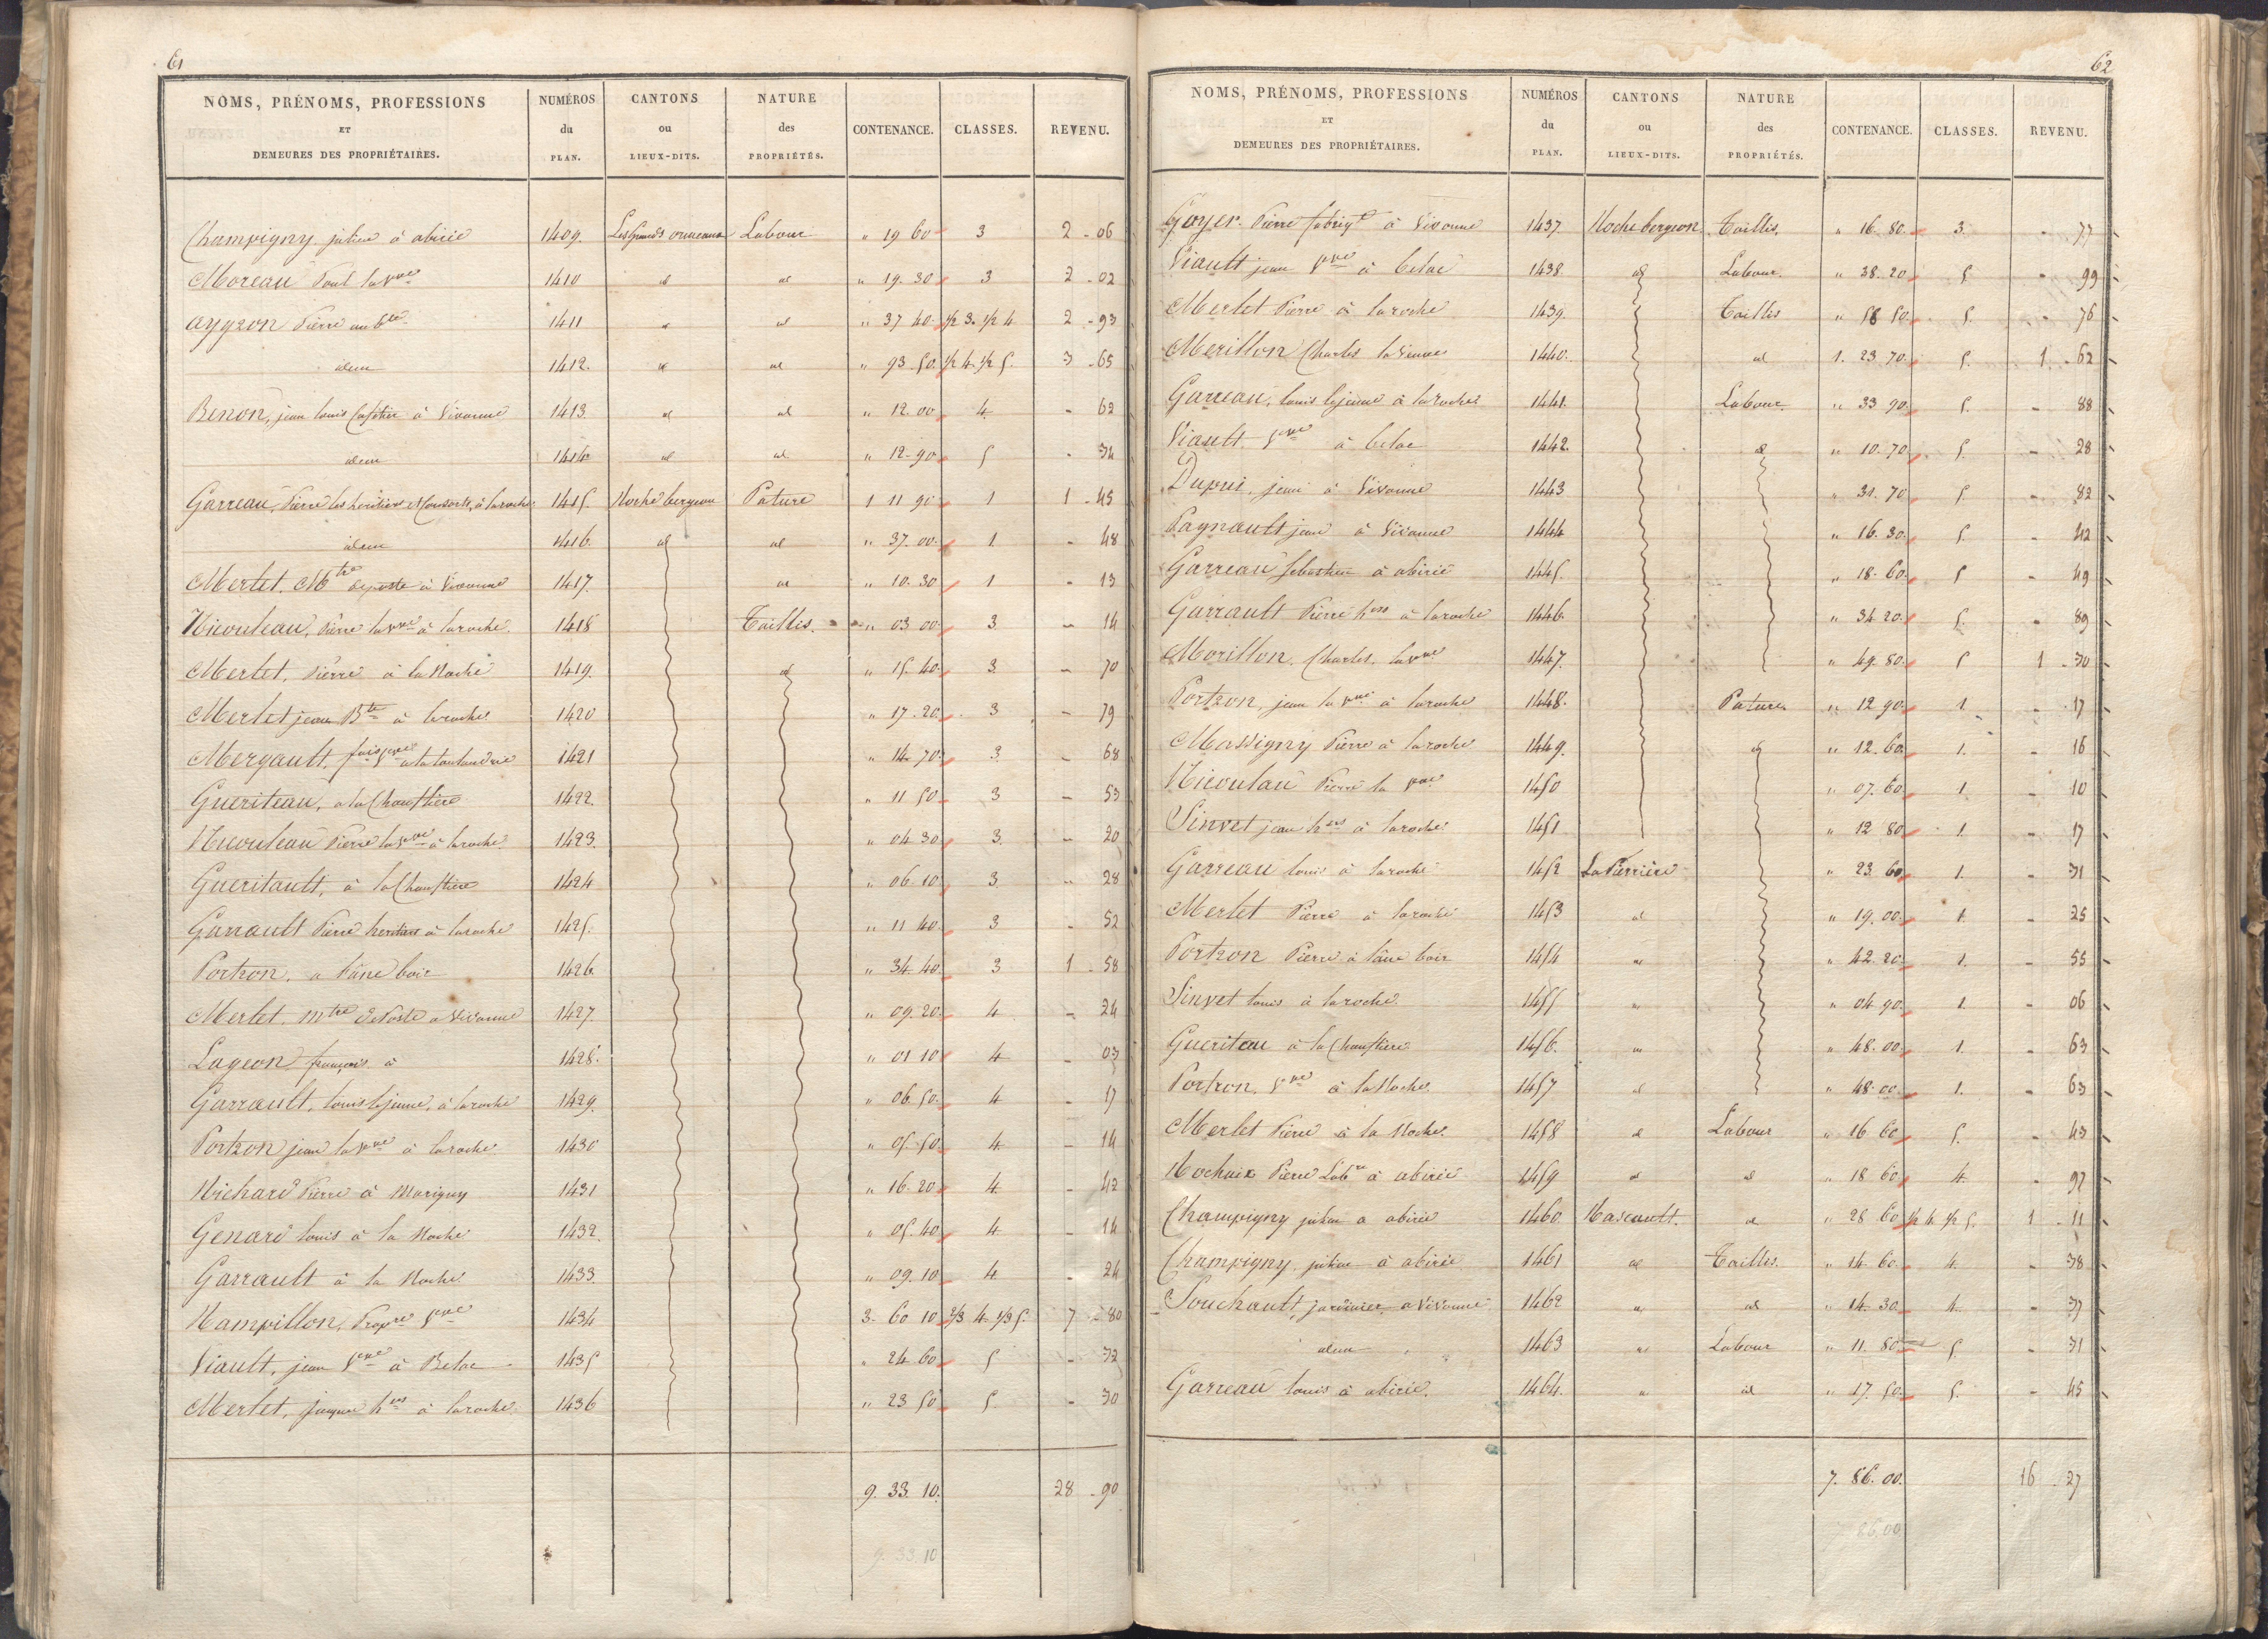 61
NOMS, PRÉNOMS, PROFESSIONS ET DEMEURES DES PROPRIÉTAIRES. NUMÉROS du PLAN. CANTONS ou LIEUX-DITS. NATURE des PROPRIÉTÉS. CONTENANCE. CLASSES. REVENU.
Champigny julien à abirie 1409. Les Grands ormeaux Labour " 19 60 3 2 - 06
Moreau Paul la Vve 1410 id id " 19. 30 3 2 - 02
Ayyzon Pierre 1411 id id " 37 40 1/2 3. 1/2 4 2 - 93
idem 1412. id id " 93. 50. 1/2 4. 1/2 5. 3 - 65
Benon, jean louis à Vivonne 1413. id id " 12. 00 4 - 62
idem 1414 id id " 12. 90 5 - 34
Garreau, Pierre les heritiers et Consorts, à laroche 1415. Roche bergeon Pature 1 11 90 1 1 - 45
idem 1416. id id " 37. 00. 1. - 48
Merlet. Mtre de poste à Vivonne 1417. id " 10. 30 1 - 13
Nicouleau, Pierre la Vve à laroche. 1418 Taillis. " 03 00 3 - 14
Merlet, Pierre à la Roche 1419. id " 15. 40. 3. - 70
Merlet jean Bte à laroche 1420 " 17. 20 3 - 79
Mergault, fois Vve 1421 " 14. 70. 3. - 68
Gueriteau, a la Chauftiere 1422. " 11 50 3 - 53
Nicouleau Pierre la Vve à laroche. 1423. " 04 30 3. - 20
Gueritault, à la Chauftiere 1424 " 06. 10 3. - 28
Garrault Pierre heritiers à laroche 1425. " 11 40. 3 - 52
Portron, a 1426. " 34. 40. 3 1 - 58
Merlet. mtre de Poste a Vivonne 1427. " 09. 20. 4 - 24
Lageon françois à 1428. " 01 10 4 - 03
Garrault, louis lejeune, à laroche 1429. " 06. 50. 4 - 17
Portron jean la Vve à laroche 1430 " 05. 50. 4. - 14
Richard Pierre à Marigny 1431 " 16. 20 4. - 42
Genard louis à la Roche 1432. " 05. 40. 4. - 14
Garrault à la Roche 1433. " 09. 10. 4 - 24
Rampillon, Propre Vve 1434 3. 60 10 2/3 4 1/3 5. 7 - 80
Viault, jean Vve à Belac 1435 " 24 60 5 - 32
Merlet, jacques hers à laroche. 1436 " 23 50 5. - 30
9. 33. 10. 28 - 90
9. 33. 10
62
NOMS, PRÉNOMS, PROFESSIONS ET DEMEURES DES PROPRIÉTAIRES. NUMÉROS du PLAN. CANTONS ou LIEUX-DITS. NATURE des PROPRIÉTÉS. CONTENANCE. CLASSES. REVENU.
Goyer. Pierre fabriqt à Vivonne 1437. Roche bergeon Taillis. " 16. 80. 3. - 77
Viault jean Vve à belac 1438. id Labour. " 38. 20 5. - 99
Merlet Pierre à laroche 1439. Taillis " 58 50. 5. - 76
Merillon Charles la Veuve 1440. id 1. 23. 70. 5. 1 - 62
Garreau, louis lejeune à laroche 1441. Labour. " 33 90 5. - 88
Viault Vve à belac 1442. id " 10. 70 5. - 28
Dupui, jean à Vivonne 1443 " 31. 70 5. - 82
Pagnault jean à Vivonne 1444 " 16. 30. 5. - 42
Garreau sebastien à abirie 1445. " 18. 60. 5 - 49
Garrault Pierre hers à laroche 1446. " 34 20. 5. - 89
Morillon. Charles. la Vve 1447. " 49. 80. 5 1 - 30
Portron, jean la Vve à laroche 1448. Pature " 12. 90 1 - 17
Massigny Pierre à laroche 1449. id " 12. 60 1. - 16
Nicoulau Pierre la Vve 1450 " 07. 60 1 - 10
Sinvet jean hers à laroche. 1451 " 12 80 1. - 17
Garreau louis à laroche 1452 La Pierriere " 23. 60 1. - 31
Merlet Pierre à laroche 1453 id " 19. 00. 1. - 25
Portron Pierre à 1454 id " 42. 20 1. - 55
Sinvet louis à laroche. 1455 id " 04. 90. 1. - 06
Gueriteau à la Chauftiere. 1456. id " 48. 00. 1. - 63
Portron. Vve à la Roche. 1457 id " 48. 00. 1. - 63
Merlet Pierre à la Roche. 1458 id Labour " 16 60 5. - 43
Rochaix Pierre Labr à abirie 1459 id id " 18 60 4. - 97
Champigny julien a abirie 1460. Rascault. id " 28 60 1/2 4. 1/2 5. 1 - 11
Champigny. julien à abirie 1461 id Taillis. " 14. 60. 4. - 38
Souchault, jardinier, a Vivonne 1462 id id " 14. 30. 4. - 37
idem 1463 id Labour " 11. 80 5. - 31
Garreau louis à abirie. 1464. id id " 17. 50. 5. - 45
7. 86. 00. 16 - 27
7. 86. 00